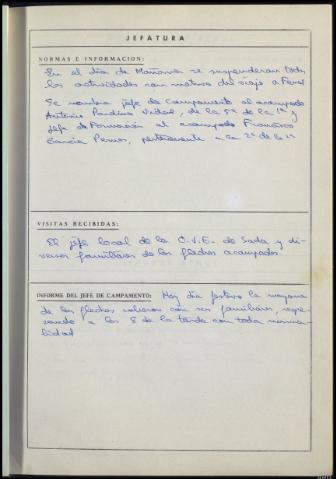 JEFATURA
NORMAS E INFORMACION:
En el día de Mañana se suspenderan todas
las actividades con motivo del viaje a Ferrol
Se nombra jefe de campamento al acampado
Antonio Vidal, de la 5ª de la 1ª y
Jefe de Formación al acampado Francisco
García perteneciente a la 2ª de la 1ª
VISITAS RECIBIDAS:
El jefe local de la O.J.E. de Sada y di-
versos familiares de los flechas acampados.
INFORME DEL JEFE DE CAMPAMENTO: Hoy día festivo la mayoria
de los flechas salieron con sus familiares, regre-
sando a las 8 de la tarde con toda norma-
lidad